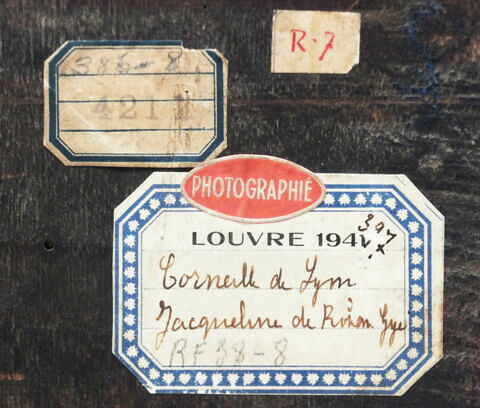 R.7
386-8
421
PHOTOGRAPHIÉ
LOUVRE 194
Corneille de Lyon
Jacqueline de Rohan Gye
RF 38-8